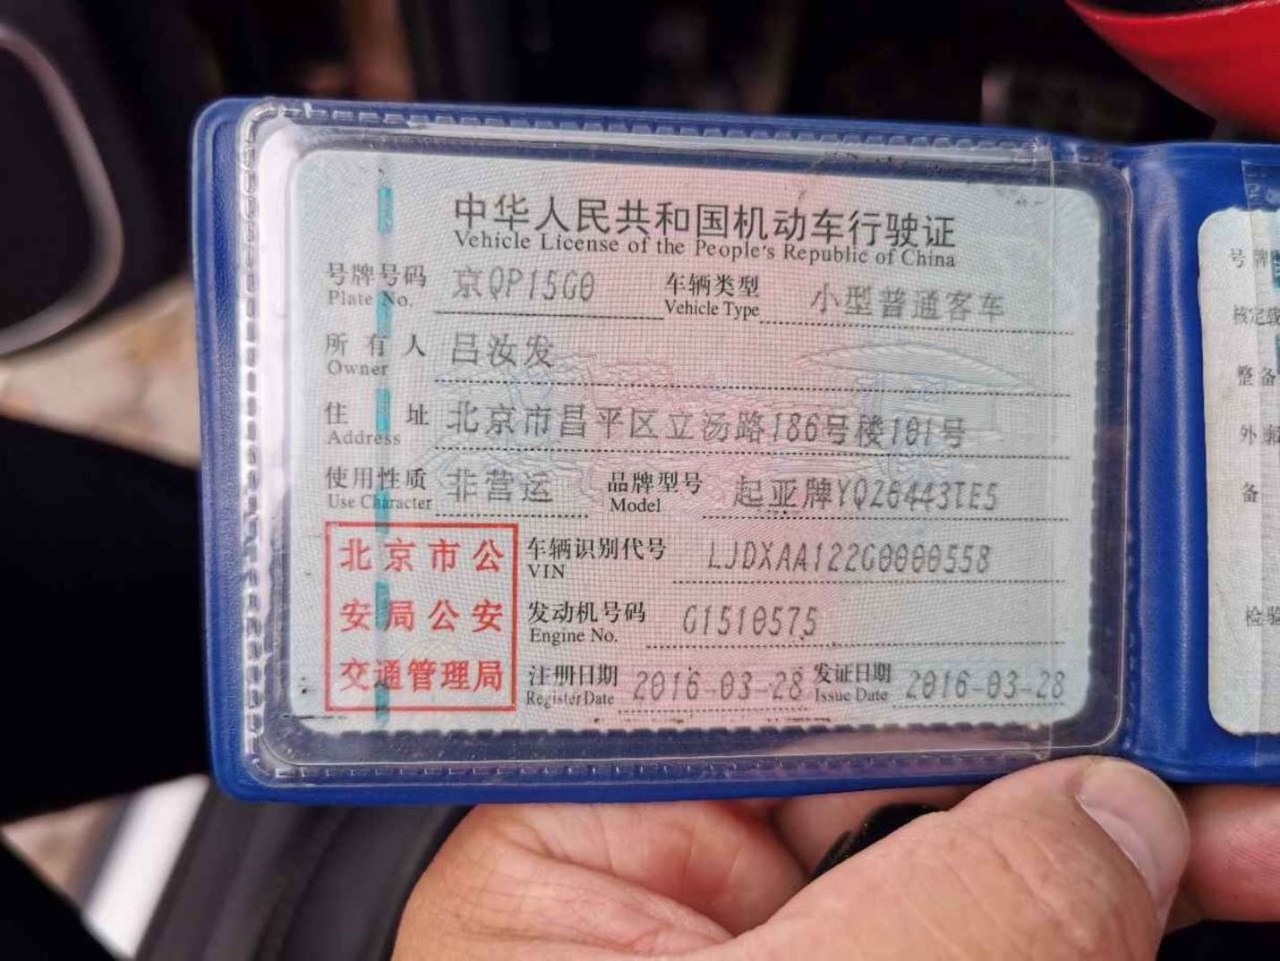 中华人民共和国机动车行驶证
Vehicle License of the People's Republic of China
号牌号码 京QP15G0 车辆类型 小型普通客车
Plate No. Vehicle Type
所有人 吕汝发
Owner
住址 北京市昌平区立汤路186号楼101号
Address
使用性质 非营运 品牌型号 起亚牌YQZ6443TE5
Use Character Model
北京市公
安局公安
交通管理局
车辆识别代号 LJDXAA122G0000558
VIN
发动机号码 G1510575
Engine No.
注册日期 2016-03-28 发证日期 2016-03-28
Register Date Issue Date
号牌
核定载
整备
外廓
备
检验